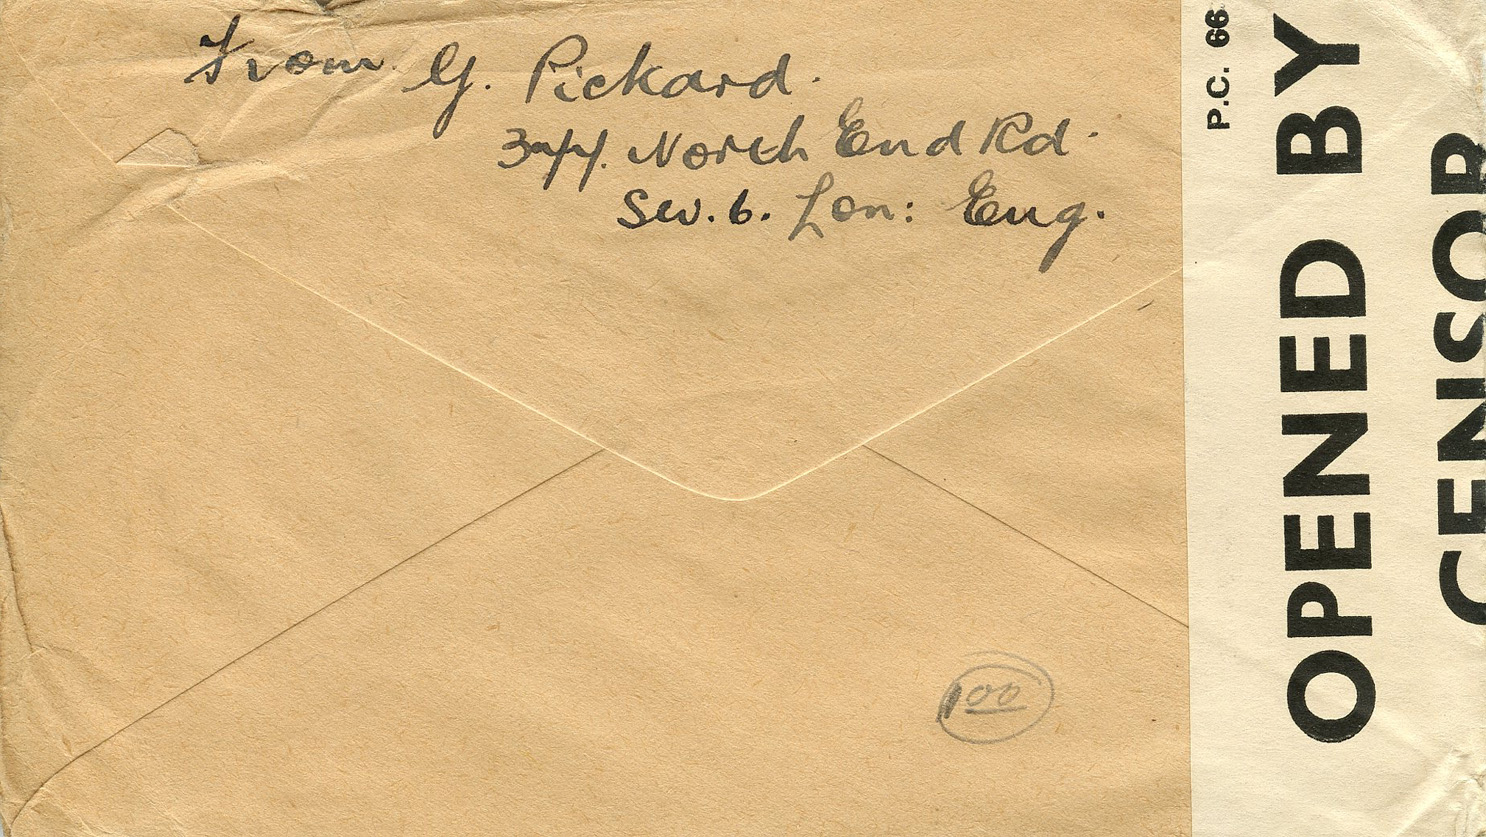 From G. Pickard.
North End Rd.
SW. 6. Lon: Eng.
P.C. 66
OPENED BY
CENSOR
100